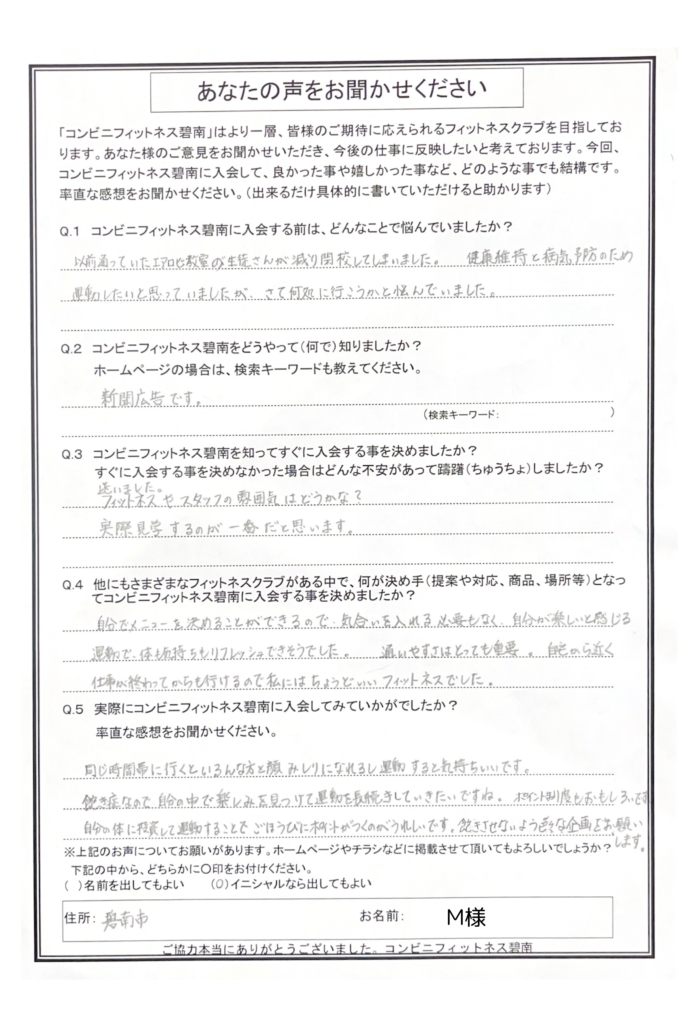 あなたの声をお聞かせください
「コンビニフィットネス碧南」はより一層、皆様のご期待に応えられるフィットネスクラブを目指してお
ります。あなた様のご意見をお聞かせいただき、今後の仕事に反映したいと考えております。今回、
コンビニフィットネス碧南に入会して、良かった事や嬉しかった事など、どのような事でも結構です。
率直な感想をお聞かせください。（出来るだけ具体的に書いていただけると助かります）
Q.1 コンビニフィットネス碧南に入会する前は、どんなことで悩んでいましたか？
以前通っていたエアロビ教室の生徒さんが減り閉校してしまいました。 健康維持と病気予防のため
運動したいと思っていましたが、さて何処に行こうかと悩んでいました。
Q.2 コンビニフィットネス碧南をどうやって（何で）知りましたか？
ホームページの場合は、検索キーワードも教えてください。
新聞広告です。
（検索キーワード： ）
Q.3 コンビニフィットネス碧南を知ってすぐに入会する事を決めましたか？
すぐに入会する事を決めなかった場合はどんな不安があって躊躇（ちゅうちょ）しましたか？
迷いました。
フィットネスやスタッフの雰囲気はどうかな？
実際見学するのが一番だと思います。
Q.4 他にもさまざまなフィットネスクラブがある中で、何が決め手（提案や対応、商品、場所等）となっ
てコンビニフィットネス碧南に入会する事を決めましたか？
自分でメニューを決めることができるので、気合いを入れる必要もなく、自分が楽しいと感じる
運動で、体も気持ちもリフレッシュできそうでした。 通いやすさはとっても重要。 自宅から近く
仕事が終わってからも行けるので私にはちょうどいいフィットネスでした。
Q.5 実際にコンビニフィットネス碧南に入会してみていかがでしたか？
率直な感想をお聞かせください。
同じ時間帯に行くといろんな方と顔みしりになれるし運動すると気持ちいいです。
飽き症なので、自分の中で楽しみを見つけて運動を長続きしていきたいですね。 ポイント制度もおもしろいです
自分の体に投資して運動することでごほうびにポイントがつくのがうれしいです。飽きさせないよう色々な企画をお願い
します。
※上記のお声についてお願いがあります。ホームページやチラシなどに掲載させて頂いてもよろしいでしょうか？
下記の中から、どちらかに〇印をお付けください。
（ ）名前を出してもよい （〇）イニシャルなら出してもよい
住所： 碧南市 お名前： M様
ご協力本当にありがとうございました。コンビニフィットネス碧南